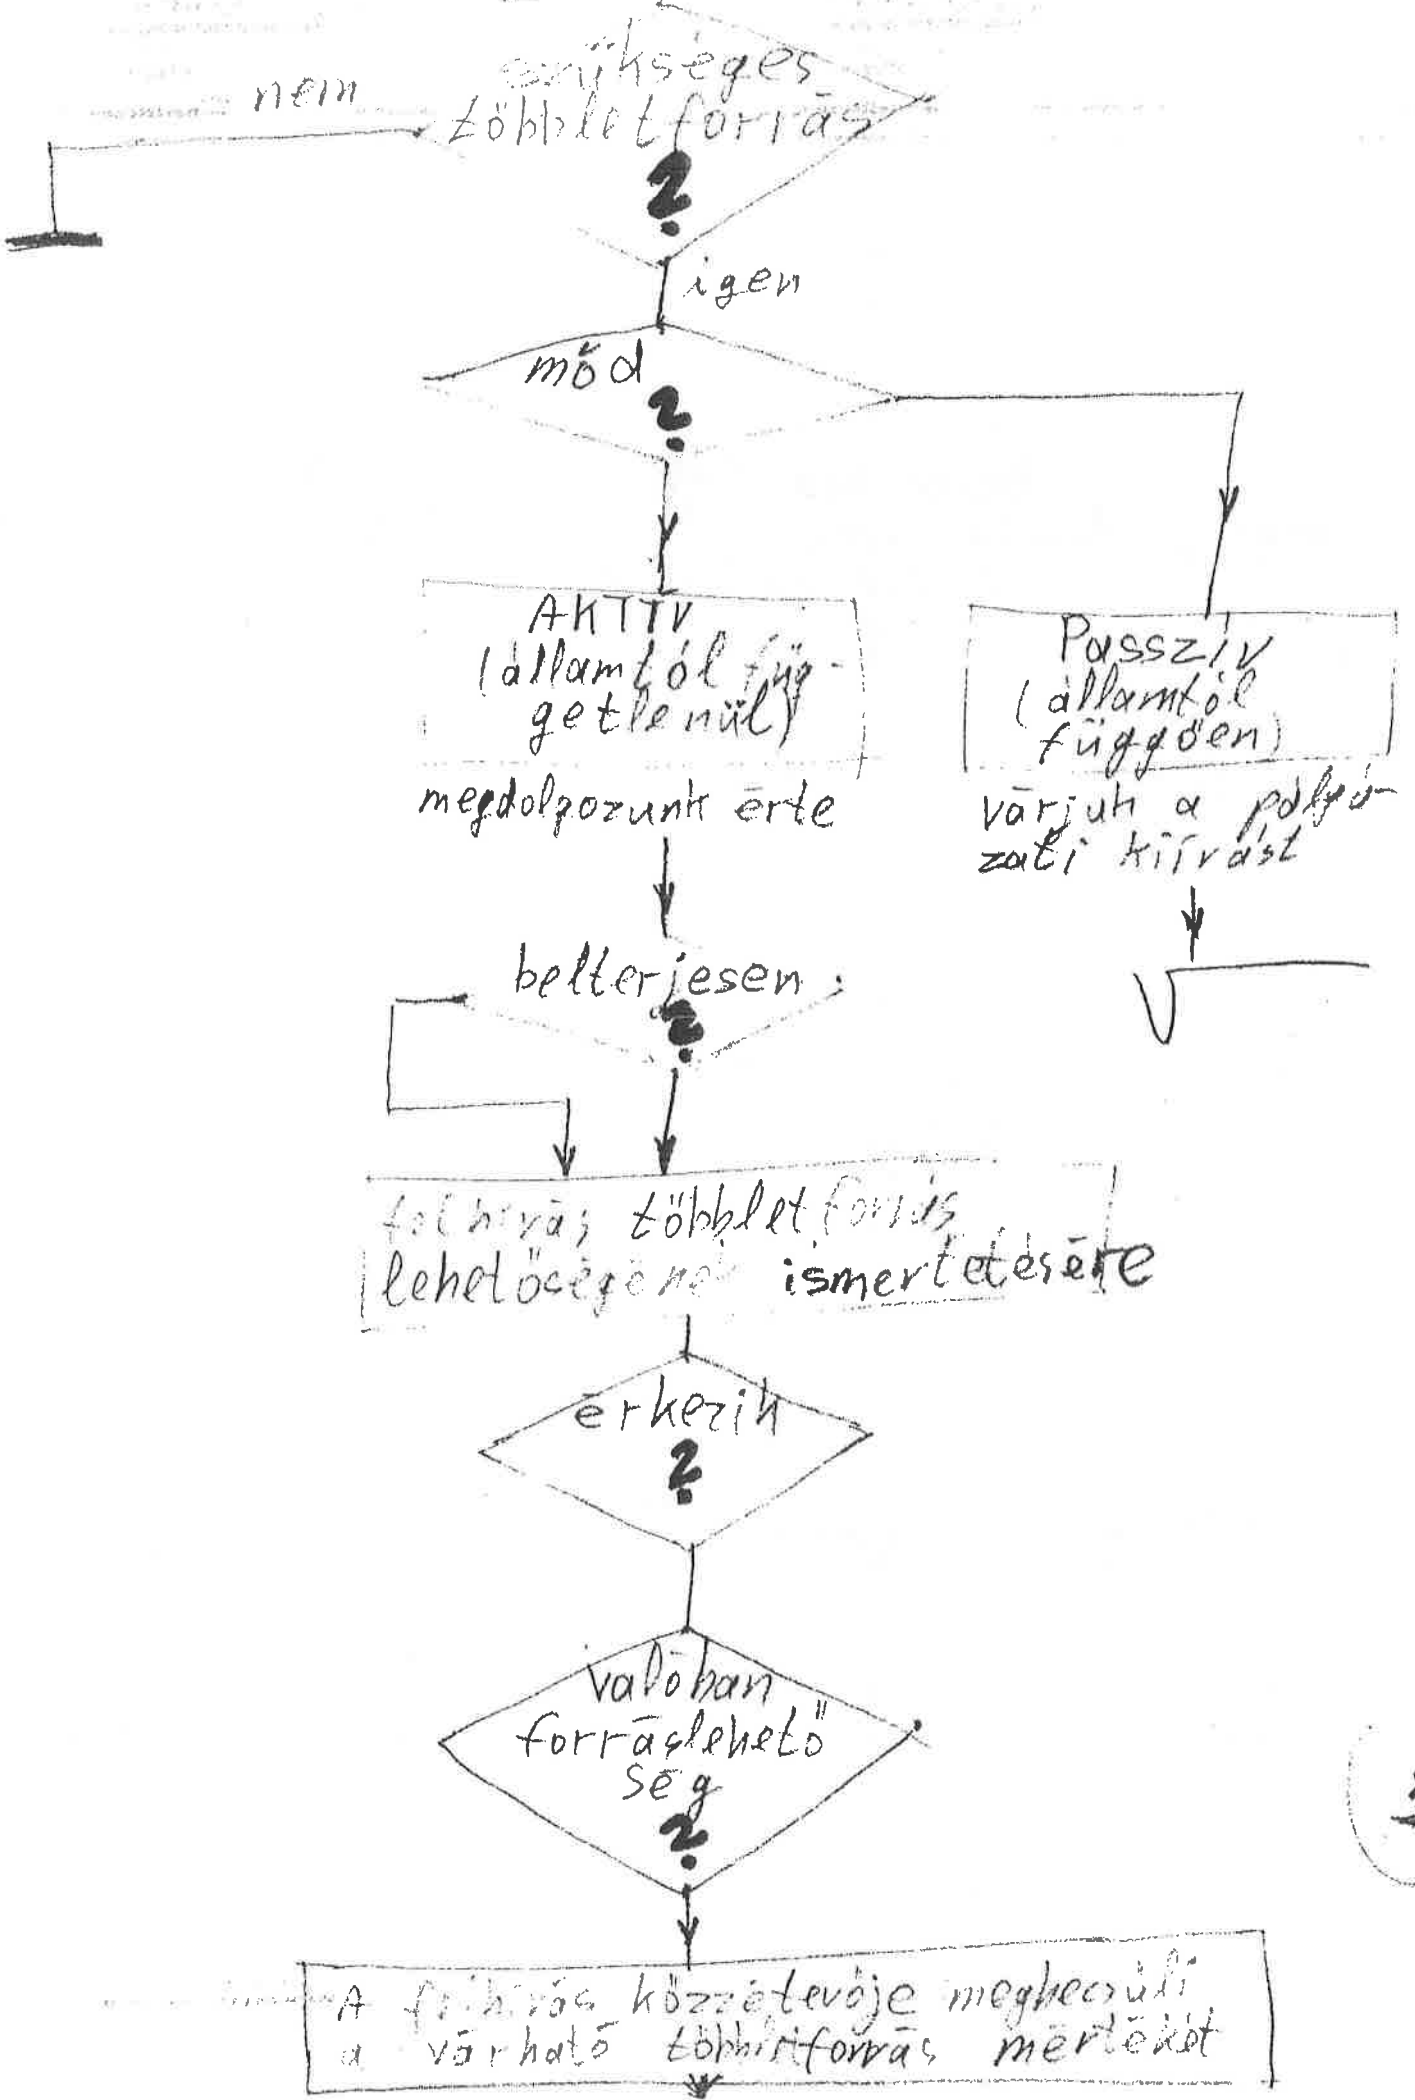 szükséges
nem
többletforrás
?
igen
mód
?
AKTÍV
(államtól füg-
getlenül)
Passzív
(államtól
függően)
megdolgozunk érte
várjuk a pályá-
zati kiírást
belterjesen
?
felhívás többletforrás
lehetőségének ismertetésére
érkezik
?
valóban
forráslehető
ség
?
A felhívás közzétevője megbecsüli
a várható többletforrás mértékét